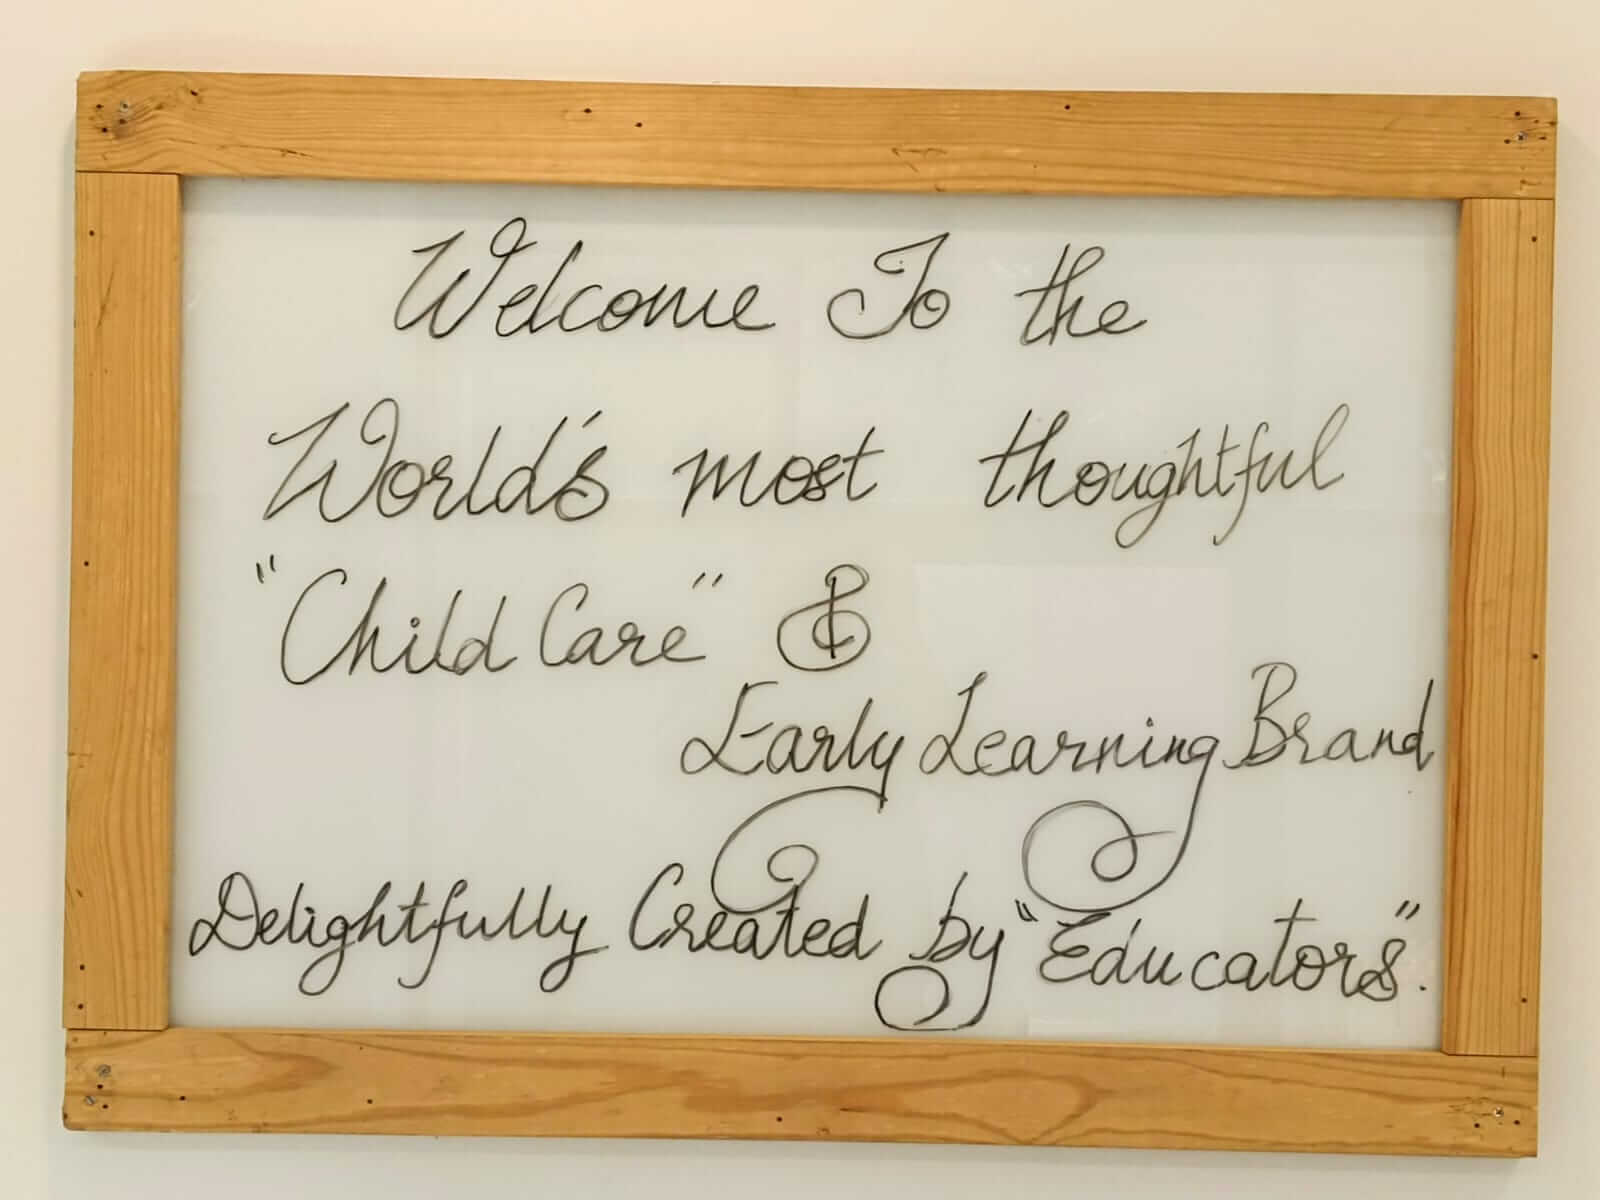 Welcome To the
World's most thoughtful
"Child Care" &
Early Learning Brand
Delightfully Created by "Educators".